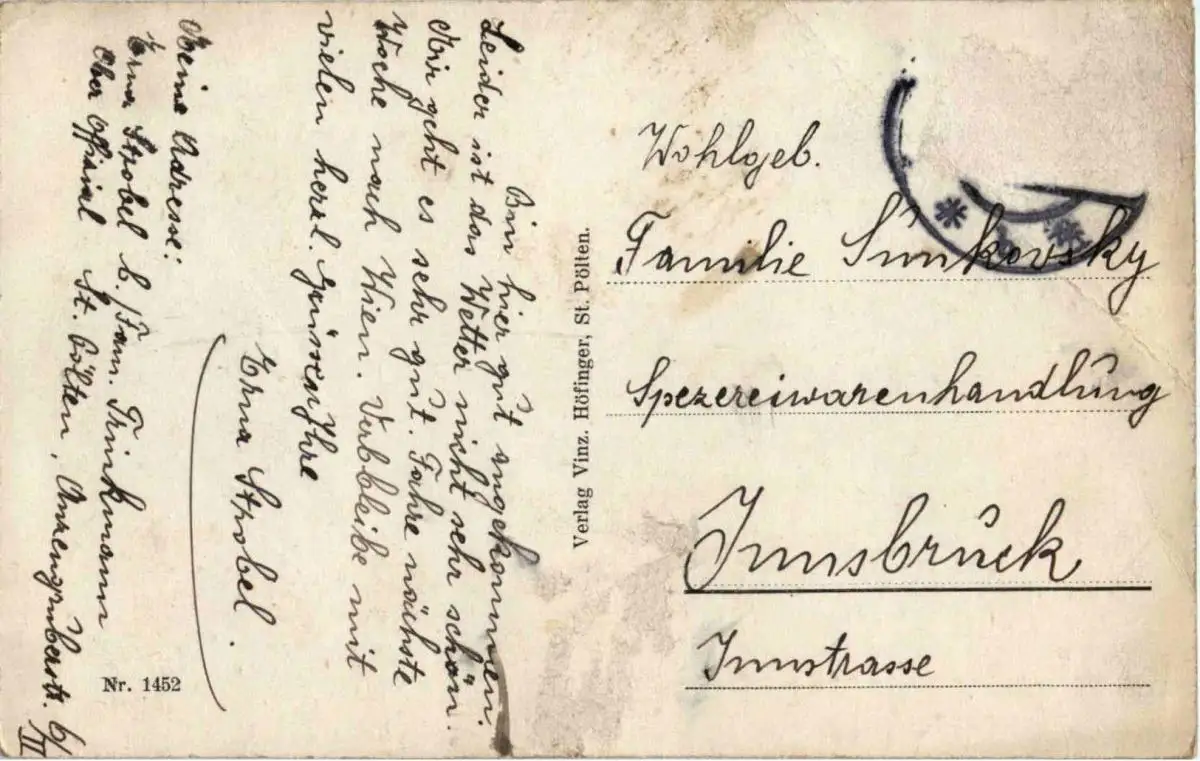 Bin hier gut angekommen.
Leider ist das Wetter nicht sehr schön.
Mir geht es sehr gut. Fahre nächste
Woche nach Wien. Verbleibe mit
vielen herzl. Grüssen Ihre
Erna Strobel.
Meine Adresse:
Erna Strobel b. Fam. Trinkmann
Ober Offizial St. Pölten, Anzengruberstr. 6/II
Nr. 1452
Verlag Vinz. Höfinger, St. Pölten.
Wohlgeb.
Familie Sunkovsky
Spezereiwarenhandlung
Innsbruck
Innstrasse